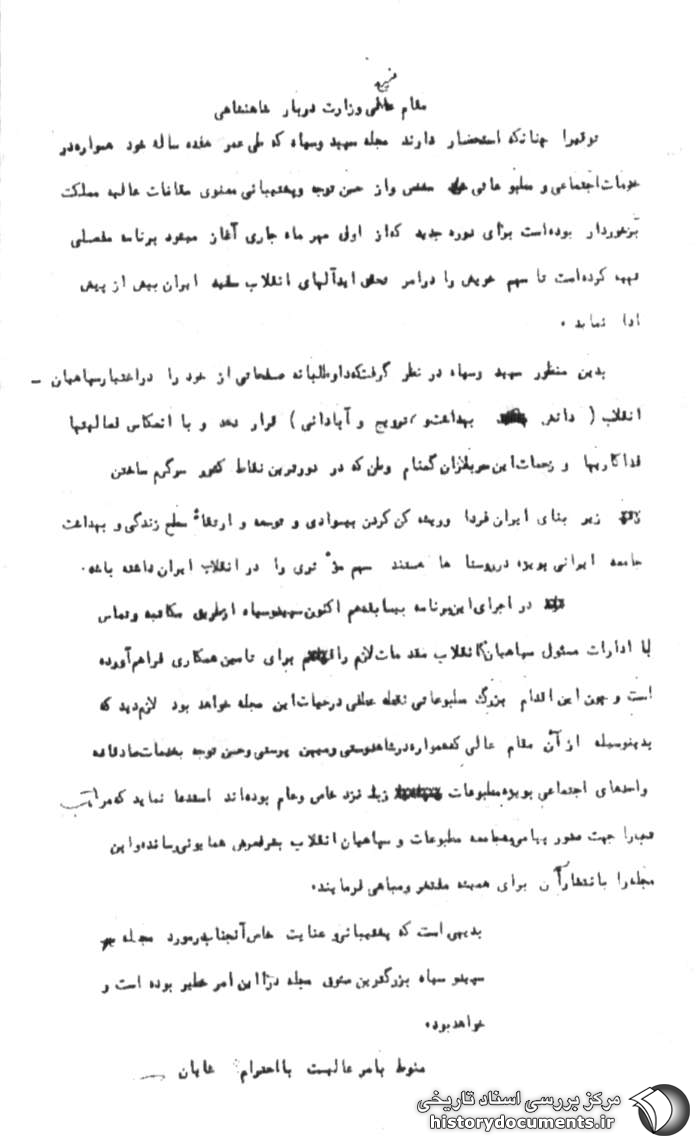 منیع
مقام عالی وزارت دربار شاهنشاهی
توقیرا چنانکه استحضار دارند مجله سپید وسیاه که طی عمر هفده ساله خود همواره در
خدمات اجتماعی و مطبوعاتی واز حسن توجه وپشتیبانی معنوی مقامات عالیه مملکت
برخوردار بوده است برای دوره جدید که از اول مهر ماه جاری آغاز میشود برنامه مفصلی
تهیه کرده است تا سهم خویش را درامر تحقق ایدآلهای انقلاب سفید ایران بیش از پیش
ادا نماید .
بدین منظور سپید وسیاه در نظر گرفته داوطلبانه صفحاتی از خود را دراختیار سپاهیان -
انقلاب ( دانش بهداشت و ترویج و آبادانی ) قرار دهد و با انعکاس فعالیتها
فداکاریها و زحمات این سربازان گمنام وطن که در دورترین نقاط کشور سرگرم ساختن
زیر بنای ایران فردا وریشه کن کردن بیسوادی و توسعه و ارتقاء سطح زندگی و بهداشت
جامعه ایرانی بویژه درروستا ها هستند سهم مؤثری را در انقلاب ایران داشته باشد .
در اجرای این برنامه بیسابقه هم اکنون سپیدوسیاه ازطریق مکاتبه وتماس
با ادارات مسئول سپاهیان انقلاب مقدمات لازم را برای تامین همکاری فراهم آورده
است و چون این اقدام بزرگ مطبوعاتی نقطه عطفی درحیات این مجله خواهد بود لازم دید که
بدینوسیله از آن مقام عالی که همواره درشاهدوستی ومیهن پرستی وحسن توجه بخدمات صادقانه
واحدهای اجتماعی بویژه مطبوعات زبانزد خاص وعام بوده اند استدعا نماید که مراتب
را جهت صدور پیامی بجامعه مطبوعات و سپاهیان انقلاب بشرفعرض همایونی رسانده واین
مجله را بانتشار آن برای همیشه مفتخر ومباهی فرمایند .
بدیهی است که پشتیبانی و عنایت خاص آنجناب درمورد مجله
سپیدو سیاه بزرگترین مشوق مجله دراین امر خطیر بوده است و
خواهدبود .
منوط بامر عالیست بااحترام شایان
مرکز بررسی اسناد تاریخی
historydocuments.ir